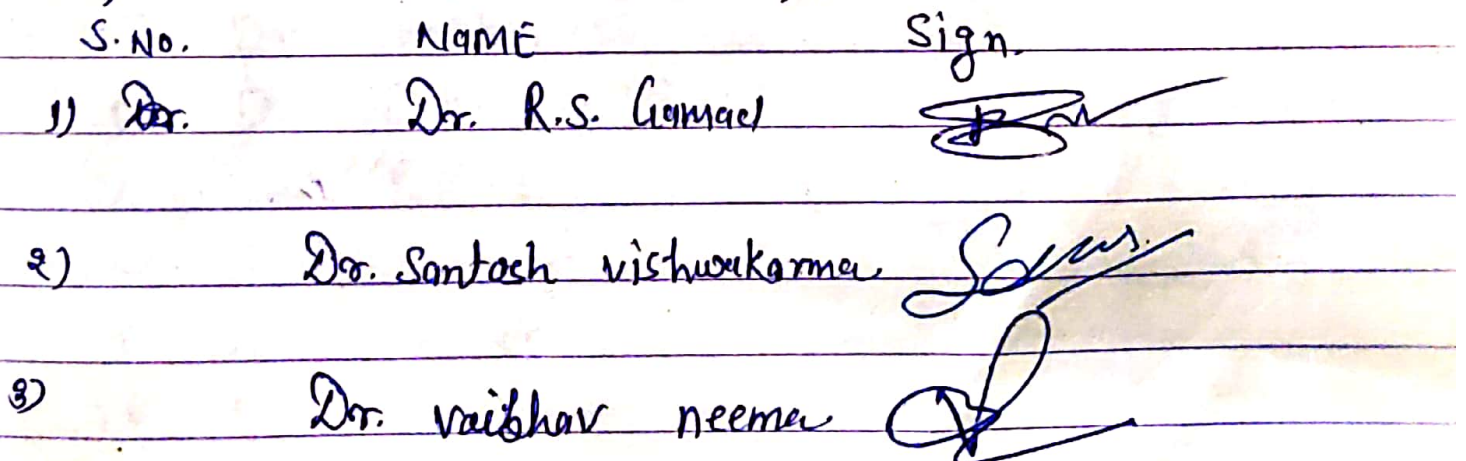 S.No. NAME Sign.
1) Dr. Dr. R.S. Gamad
2) Dr. Santosh vishwakarma
3) Dr. vaibhav neema